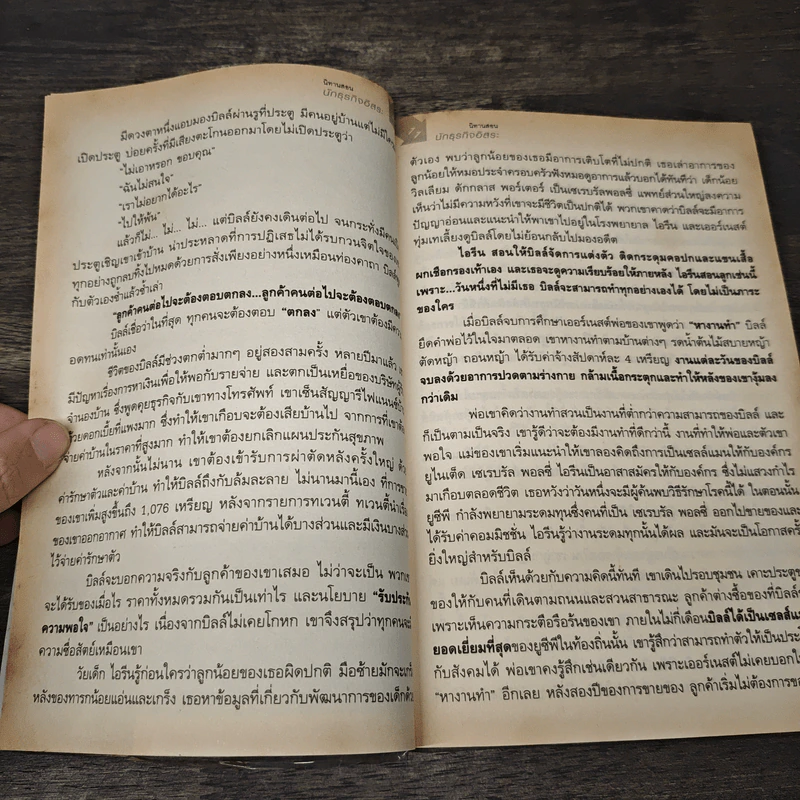 นิทานสอน
นักธุรกิจอิสระ
มีดวงตาหนึ่งแอบมองบิลล์ผ่านรูที่ประตู มีคนอยู่บ้านแต่ไม่มีใคร
เปิดประตู บ่อยครั้งที่มีเสียงตะโกนออกมาโดยไม่เปิดประตูว่า
"ไม่เอาหรอก ขอบคุณ"
"ฉันไม่สนใจ"
"เราไม่อยากได้อะไร"
"ไปให้พ้น"
แล้วก็ไม่... ไม่... ไม่... แต่บิลล์ยังคงเดินต่อไป จนกระทั่งมีคนเปิด
ประตูเชิญเขาเข้าบ้าน น่าประหลาดที่การปฏิเสธไม่ได้รบกวนจิตใจของ
ทุกอย่างถูกลบทิ้งไปหมดด้วยการสั่งเพียงอย่างหนึ่งเหมือนท่องคาถา บิลล์
กับตัวเองซ้ำแล้วซ้ำเล่า
"ลูกค้าคนต่อไปจะต้องตอบตกลง...ลูกค้าคนต่อไปจะต้องตอบตกลง
บิลล์เชื่อว่าในที่สุด ทุกคนจะต้องตอบ "ตกลง" แต่ตัวเขาต้องมีความ
อดทนเท่านั้นเอง
ชีวิตของบิลล์มีช่วงตกต่ำมากๆ อยู่สองสามครั้ง หลายปีมาแล้ว
มีปัญหาเรื่องการหาเงินเพื่อให้พอกับรายจ่าย และตกเป็นเหยื่อของบริษัท
จำนองบ้าน ซึ่งพูดคุยธุรกิจกับเขาทางโทรศัพท์ เขาเซ็นสัญญารีไฟแนนซ์
ด้วยดอกเบี้ยที่แพงมาก ซึ่งทำให้เขาเกือบจะต้องเสียบ้านไป จากการที่เขาต้อง
จ่ายค่าบ้านในราคาที่สูงมาก ทำให้เขาต้องยกเลิกแผนประกันสุขภาพ
หลังจากนั้นไม่นาน เขาต้องเข้ารับการผ่าตัดหลังครั้งใหญ่ ด้วย
ค่ารักษาตัวและค่าบ้าน ทำให้บิลล์ถึงกับล้มละลาย ไม่นานมานี้เอง ที่
ของเขาเพิ่มสูงขึ้นถึง 1,076 เหรียญ หลังจากรายการทเวนตี้ ทเวนตี้นำเรื่อง
ของเขาออกอากาศ ทำให้บิลล์สามารถจ่ายค่าบ้านได้บางส่วนและมีเงินบางส่วน
ไว้จ่ายค่ารักษาตัว
บิลล์จะบอกความจริงกับลูกค้าของเขาเสมอ ไม่ว่าจะเป็น พวกเขา
จะได้รับของเมื่อไร ราคาทั้งหมดรวมกันเป็นเท่าไร และนโยบาย "รับประกัน
ความพอใจ" เป็นอย่างไร เนื่องจากบิลล์ไม่เคยโกหก เขาจึงสรุปว่าทุกคนจะ
ความซื่อสัตย์เหมือนเขา
วัยเด็ก ไอรีนรู้ก่อนใครว่าลูกน้อยของเธอผิดปกติ มือซ้ายมักจะ
หลังของทารกน้อยแอ่นและเกร็ง เธอหาข้อมูลที่เกี่ยวกับพัฒนาการของเด็กด้วย
นิทานสอน
นักธุรกิจอิสระ
ตัวเอง พบว่าลูกน้อยของเธอมีอาการเติบโตที่ไม่ปกติ เธอเล่าอาการของ
ลูกน้อยให้หมอประจำครอบครัวฟังหมอดูอาการแล้วบอกได้ทันทีว่า เด็กน้อย
วิลเลียม ดักกลาส พอร์เตอร์ เป็นเซเรบรัลพอลซี่ แพทย์ส่วนใหญ่ลงความ
เห็นว่าไม่มีความหวังที่เขาจะมีชีวิตเป็นปกติได้ พวกเขาคาดว่าบิลล์จะมีอาการ
ปัญญาอ่อนและแนะนำให้พาเขาไปอยู่ในโรงพยาบาล ไอรีน และเออร์เนสต์
ทุ่มเทเลี้ยงดูบิลล์โดยไม่ย้อนกลับไปมองอดีต
ไอรีน สอนให้บิลล์จัดการแต่งตัว ติดกระดุมคอปกและแขนเสื้อ
ผูกเชือกรองเท้าเอง และเธอจะดูความเรียบร้อยให้ภายหลัง ไอรีนสอนลูกเช่นนี้
เพราะ...วันหนึ่งที่ไม่มีเธอ บิลล์จะสามารถทำทุกอย่างเองได้ โดยไม่เป็นภาระ
ของใคร
เมื่อบิลล์จบการศึกษาเออร์เนสต์พ่อของเขาพูดว่า "หางานทำ" บิลล์
ยึดคำพ่อไว้ในใจมาตลอด เขาหางานทำตามบ้านต่างๆ รดน้ำต้นไม้สบายหญ้า
ตัดหญ้า ถอนหญ้า ได้รับค่าจ้างสัปดาห์ละ 4 เหรียญ งานแต่ละวันของบิลล์
จบลงด้วยอาการปวดตามร่างกาย กล้ามเนื้อกระตุกและทำให้หลังของเขางุ้มลง
กว่าเดิม
พ่อเขาคิดว่างานทำสวนเป็นงานที่ต่ำกว่าความสามารถของบิลล์ และ
ก็เป็นตามเป็นจริง เขารู้ดีว่าจะต้องมีงานทำที่ดีกว่านี้ งานที่ทำให้พ่อและตัวเขา
พอใจ แม่ของเขาเริ่มแนะนำให้เขาลองคิดถึงการเป็นเซลส์แมนให้กับองค์กร
ยูไนเต็ด เซเรบรัล พอลซี่ ไอรีนเป็นอาสาสมัครให้กับองค์กร ซึ่งไม่แสวงกำไร
มาเกือบตลอดชีวิต เธอหวังว่าวันหนึ่งจะมีผู้ค้นพบวิธีรักษาโรคนี้ได้ ในตอนนั้น
ยูซีพี กำลังพยายามระดมทุนซึ่งคนที่เป็น เซเรบรัล พอลซี่ ออกไปขายของและ
ได้รับค่าคอมมิชชั่น ไอรีนรู้ว่างานระดมทุกนั้นได้ผล และมันจะเป็นโอกาสครั้ง
ยิ่งใหญ่สำหรับบิลล์
บิลล์เห็นด้วยกับความคิดนี้ทันที เขาเดินไปรอบชุมชน เคาะประตู
ของให้กับคนที่เดินตามถนนและสวนสาธารณะ ลูกค้าต่างซื้อของที่บิลล์
เพราะเห็นความกระตือรือร้นของเขา ภายในไม่กี่เดือนบิลล์ได้เป็นเซลส์แมน
ยอดเยี่ยมที่สุดของยูซีพีในท้องถิ่นนั้น เขารู้สึกว่าสามารถทำตัวให้เป็นประโยชน์
กับสังคมได้ พ่อเขาคงรู้สึกเช่นเดียวกัน เพราะเออร์เนสต์ไม่เคยบอกให้
"หางานทำ" อีกเลย หลังสองปีของการขายของ ลูกค้าเริ่มไม่ต้องการของ